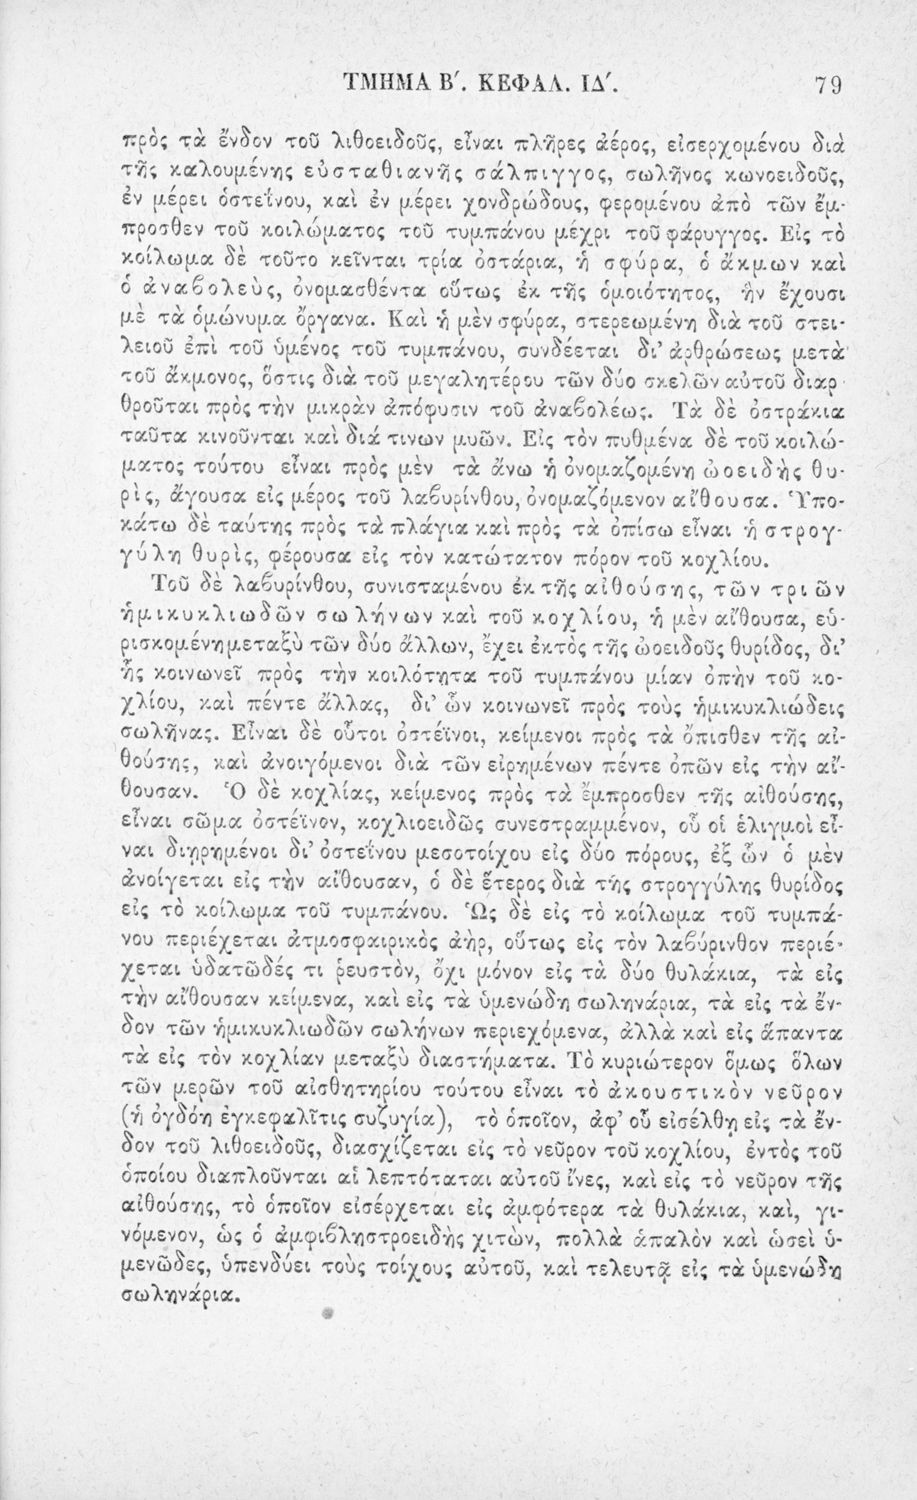 ΤΜΗΜΑ Β΄. ΚΕΦΑΛ. ΙΔ΄. 79
πρὸς τὰ ἔνδον τοῦ λιθοειδοῦς, εἶναι πλῆρες ἀέρος, εἰσερχομένου διὰ
τῆς καλουμένης εὐσταθιανῆς σάλπιγγος, σωλῆνος κωνοειδοῦς,
ἐν μέρει ὀστεΐνου, καὶ ἐν μέρει χονδρώδους, φερομένου ἀπὸ τῶν ἔμ-
προσθεν τοῦ κοιλώματος τοῦ τυμπάνου μέχρι τοῦ φάρυγγος. Εἰς τὸ
κοίλωμα δὲ τοῦτο κεῖνται τρία ὀστάρια, ἡ σφύρα, ὁ ἄκμων καὶ
ὁ ἀναβολεὺς, ὀνομασθέντα οὕτως ἐκ τῆς ὁμοιότητος, ἣν ἔχουσι
μὲ τὰ ὁμώνυμα ὄργανα. Καὶ ἡ μὲν σφύρα, στερεωμένη διὰ τοῦ στει-
λειοῦ ἐπὶ τοῦ ὑμένος τοῦ τυμπάνου, συνδέεται δι’ ἀρθρώσεως μετὰ
τοῦ ἄκμονος, ὅστις διὰ τοῦ μεγαλητέρου τῶν δύο σκελῶν αὐτοῦ διαρ-
θροῦται πρὸς τὴν μικρὰν ἀπόφυσιν τοῦ ἀναβολέως. Τὰ δὲ ὀστράκια
ταῦτα κινοῦνται καὶ διά τινων μυῶν. Εἰς τὸν πυθμένα δὲ τοῦ κοιλώ-
ματος τούτου εἶναι πρὸς μὲν τὰ ἄνω ἡ ὀνομαζομένη ὠοειδὴς θυ-
ρὶς, ἄγουσα εἰς μέρος τοῦ λαβυρίνθου, ὀνομαζόμενον αἴθουσα. Ὑπο-
κάτω δὲ ταύτης πρὸς τὰ πλάγια καὶ πρὸς τὰ ὀπίσω εἶναι ἡ στρογ-
γύλη θυρὶς, φέρουσα εἰς τὸν κατώτατον πόρον τοῦ κοχλίου.
Τοῦ δὲ λαβυρίνθου, συνισταμένου ἐκ τῆς αἰθούσης, τῶν τριῶν
ἡμικυκλιωδῶν σωλήνων καὶ τοῦ κοχλίου, ἡ μὲν αἴθουσα, εὑ-
ρισκομένη μεταξὺ τῶν δύο ἄλλων, ἔχει ἐκτὸς τῆς ὠοειδοῦς θυρίδος, δι’
ἧς κοινωνεῖ πρὸς τὴν κοιλότητα τοῦ τυμπάνου μίαν ὀπὴν τοῦ κο-
χλίου, καὶ πέντε ἄλλας, δι’ ὧν κοινωνεῖ πρὸς τοὺς ἡμικυκλιώδεις
σωλῆνας. Εἶναι δὲ οὗτοι ὀστέϊνοι, κείμενοι πρὸς τὰ ὄπισθεν τῆς αἰ-
θούσης, καὶ ἀνοιγόμενοι διὰ τῶν εἰρημένων πέντε ὀπῶν εἰς τὴν αἴ-
θουσαν. Ὁ δὲ κοχλίας, κείμενος πρὸς τὰ ἔμπροσθεν τῆς αἰθούσης,
εἶναι σῶμα ὀστέϊνον, κοχλιοειδῶς συνεστραμμένον, οὗ οἱ ἑλιγμοὶ εἶ-
ναι διῃρημένοι δι’ ὀστεΐνου μεσοτοίχου εἰς δύο πόρους, ἐξ ὧν ὁ μὲν
ἀνοίγεται εἰς τὴν αἴθουσαν, ὁ δὲ ἕτερος διὰ τῆς στρογγύλης θυρίδος
εἰς τὸ κοίλωμα τοῦ τυμπάνου. Ὡς δὲ εἰς τὸ κοίλωμα τοῦ τυμπά-
νου περιέχεται ἀτμοσφαιρικὸς ἀὴρ, οὕτως εἰς τὸν λαβύρινθον περιέ-
χεται ὑδατῶδές τι ῥευστὸν, ὄχι μόνον εἰς τὰ δύο θυλάκια, τὰ εἰς
τὴν αἴθουσαν κείμενα, καὶ εἰς τὰ ὑμενώδη σωληνάρια, τὰ εἰς τὰ ἔν-
δον τῶν ἡμικυκλιωδῶν σωλήνων περιεχόμενα, ἀλλὰ καὶ εἰς ἅπαντα
τὰ εἰς τὸν κοχλίαν μεταξὺ διαστήματα. Τὸ κυριώτερον ὅμως ὅλων
τῶν μερῶν τοῦ αἰσθητηρίου τούτου εἶναι τὸ ἀκουστικὸν νεῦρον
(ἡ ὀγδόη ἐγκεφαλῖτις συζυγία), τὸ ὁποῖον, ἀφ’ οὗ εἰσέλθῃ εἰς τὰ ἔν-
δον τοῦ λιθοειδοῦς, διασχίζεται εἰς τὸ νεῦρον τοῦ κοχλίου, ἐντὸς τοῦ
ὁποίου διαπλοῦνται αἱ λεπτόταται αὐτοῦ ἴνες, καὶ εἰς τὸ νεῦρον τῆς
αἰθούσης, τὸ ὁποῖον εἰσέρχεται εἰς ἀμφότερα τὰ θυλάκια, καὶ, γι-
νόμενον, ὡς ὁ ἀμφιβληστροειδὴς χιτὼν, πολλὰ ἁπαλὸν καὶ ὡσεὶ ὑ-
μενῶδες, ὑπενδύει τοὺς τοίχους αὐτοῦ, καὶ τελευτᾷ εἰς τὰ ὑμενώδη
σωληνάρια.